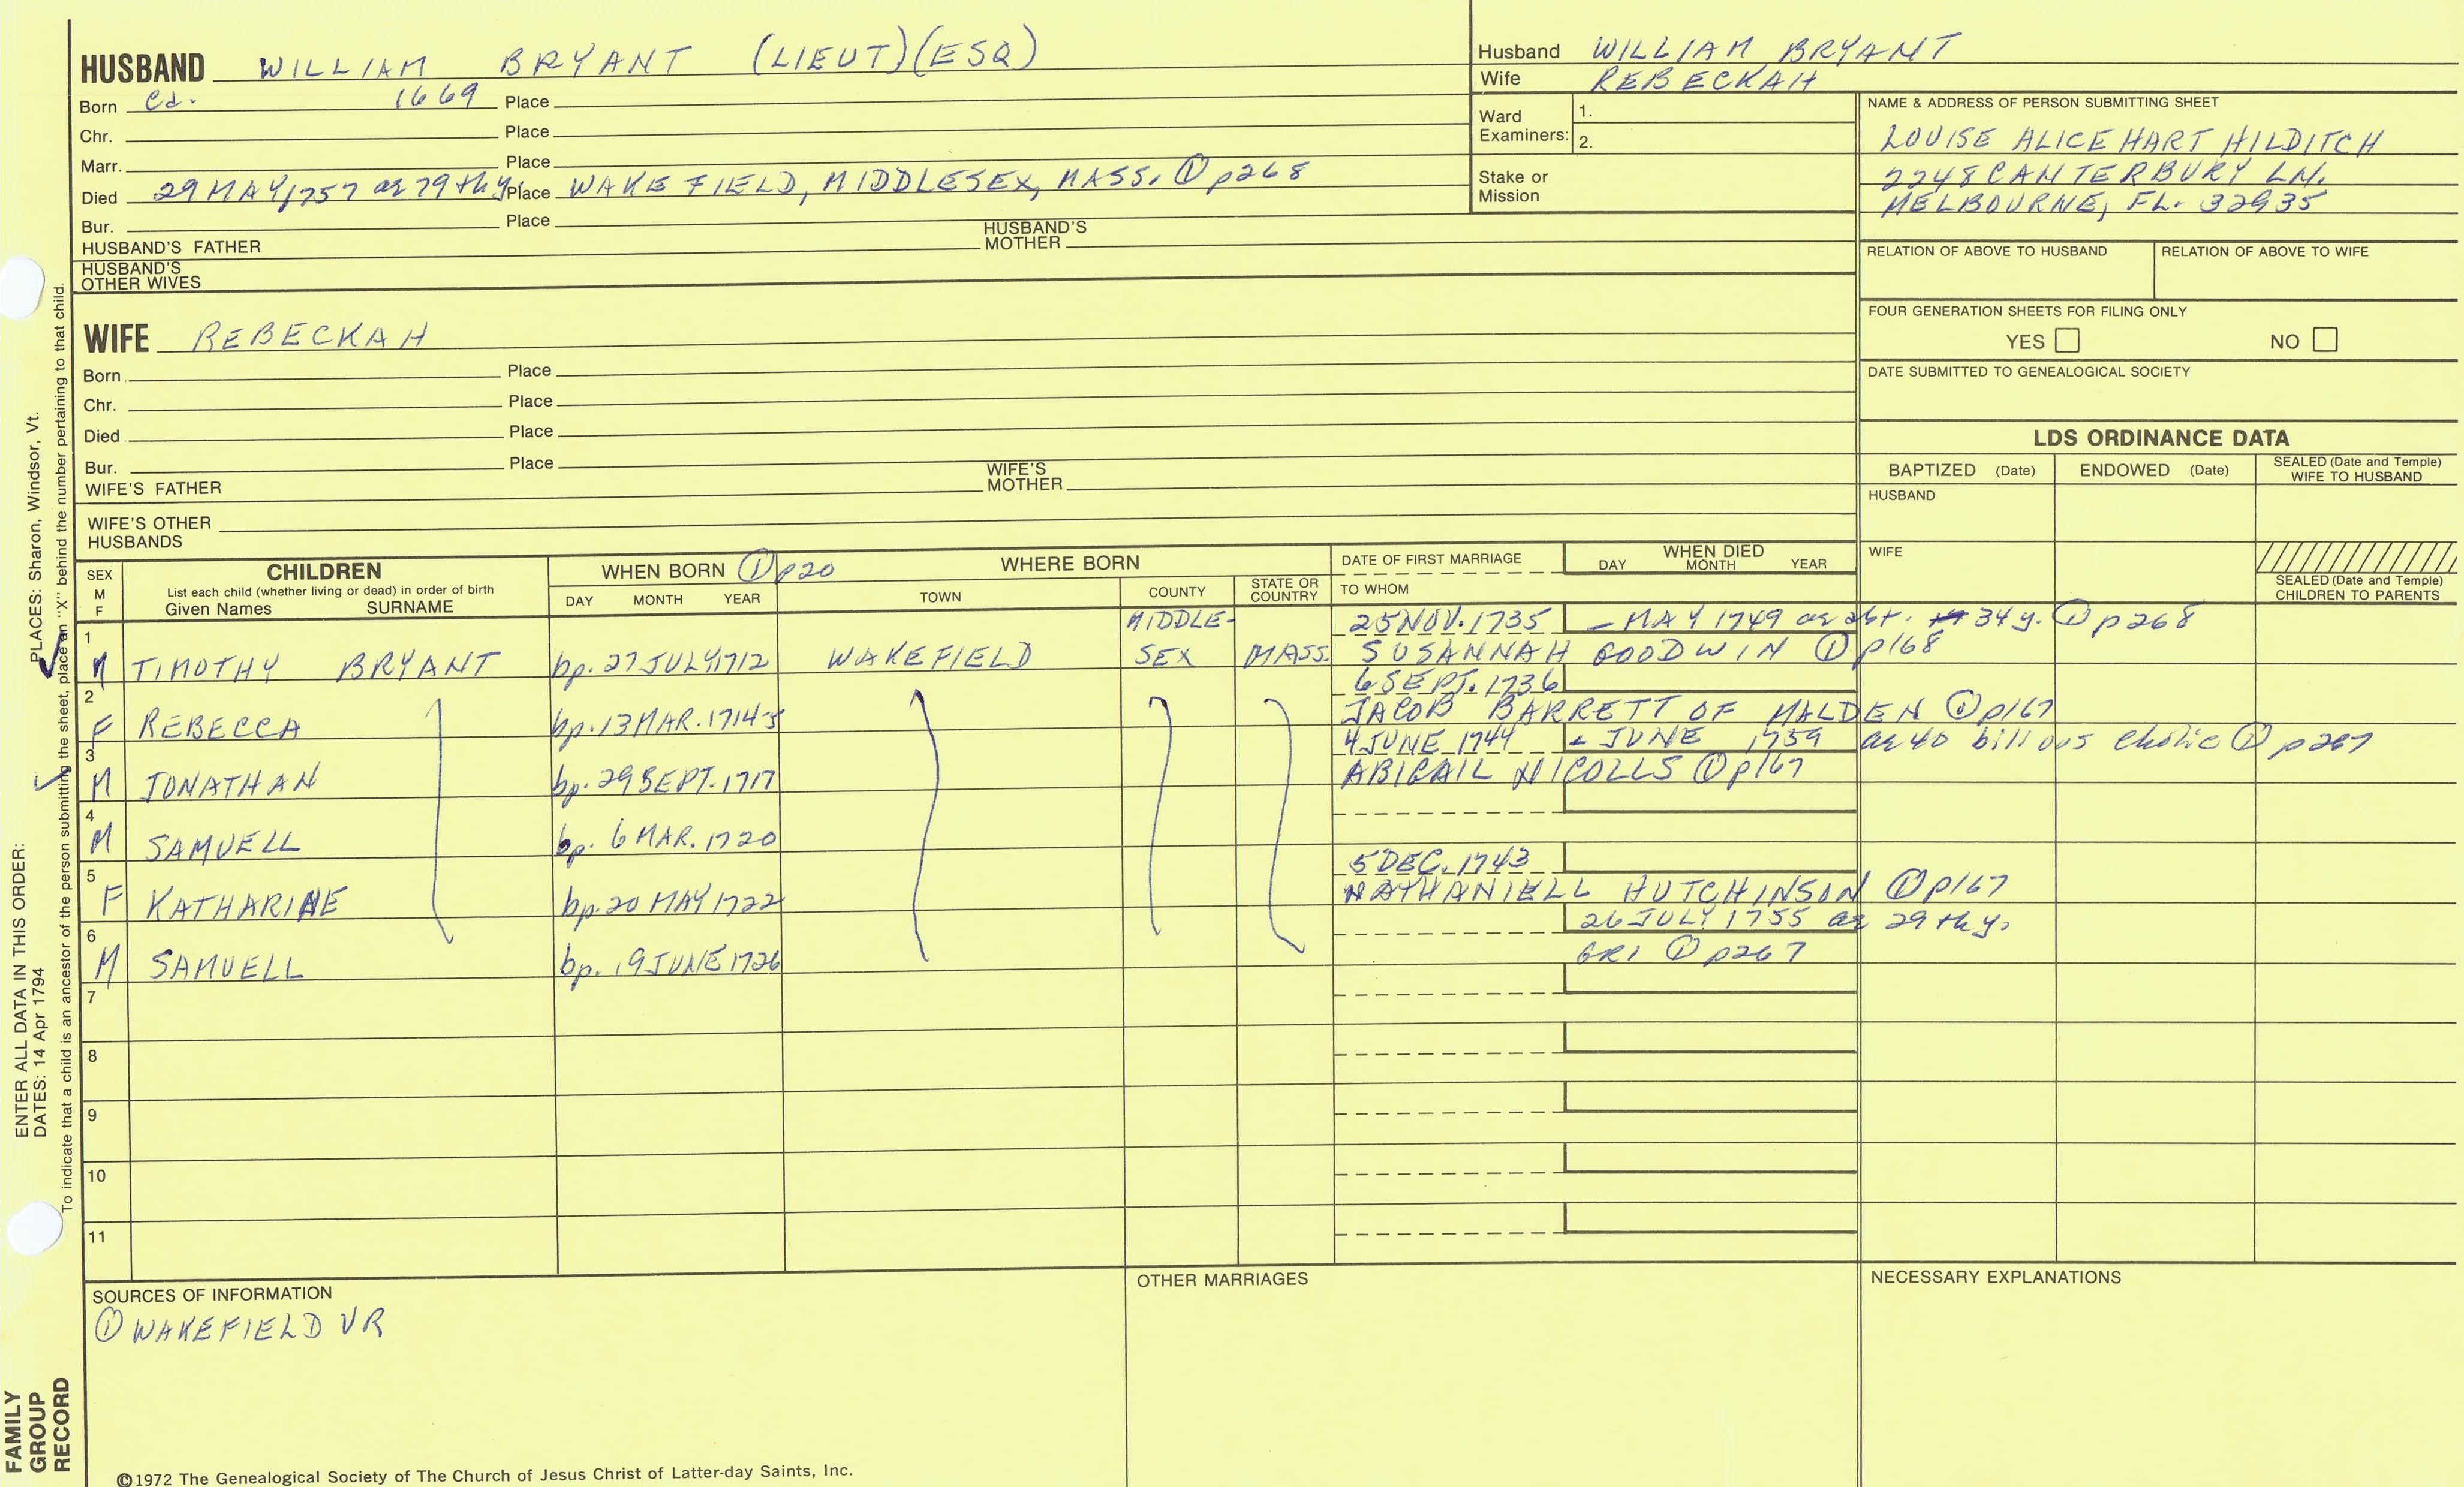 HUSBAND WILLIAM BRYANT (LIEUT)(ESQ)
Born ca. 1669 Place
Chr. Place
Marr. Place
Died 29 MAY 1757 ae 79 thy Place WAKEFIELD, MIDDLESEX, MASS. ① p268
Bur. Place
HUSBAND'S FATHER HUSBAND'S MOTHER
HUSBAND'S OTHER WIVES
Husband WILLIAM BRYANT
Wife REBECKAH
Ward Examiners: 1.
2.
Stake or Mission
NAME & ADDRESS OF PERSON SUBMITTING SHEET
LOUISE ALICE HART HILDITCH
2248 CANTERBURY LN.
MELBOURNE, FL. 32935
RELATION OF ABOVE TO HUSBAND RELATION OF ABOVE TO WIFE
FOUR GENERATION SHEETS FOR FILING ONLY
YES NO
DATE SUBMITTED TO GENEALOGICAL SOCIETY
WIFE REBECKAH
Born Place
Chr. Place
Died Place
Bur. Place
WIFE'S FATHER WIFE'S MOTHER
WIFE'S OTHER HUSBANDS
LDS ORDINANCE DATA
BAPTIZED (Date) ENDOWED (Date) SEALED (Date and Temple) WIFE TO HUSBAND
HUSBAND
WIFE
SEALED (Date and Temple) CHILDREN TO PARENTS
SEX M F
CHILDREN
List each child (whether living or dead) in order of birth
Given Names SURNAME
WHEN BORN ① p20
DAY MONTH YEAR
WHERE BORN
TOWN COUNTY STATE OR COUNTRY
DATE OF FIRST MARRIAGE
TO WHOM
WHEN DIED
DAY MONTH YEAR
1 MIDDLE- 25 NOV. 1735 – MAY 1749 ae abt. 34 y. ① p268
M TIMOTHY BRYANT bp. 27 JULY 1712 WAKEFIELD SEX MASS. SUSANNAH GOODWIN ① p168
2 6 SEPT. 1736
F REBECCA bp. 13 MAR. 1714-5 JACOB BARRETT OF MALDEN ① p167
3 4 JUNE 1744 – JUNE 1759 ae 40 billious cholic ① p267
M JONATHAN bp. 29 SEPT. 1717 ABIGAIL NICOLLS ① p167
4
M SAMUELL bp. 6 MAR. 1720
5 5 DEC. 1743
F KATHARINE bp. 20 MAY 1722 NATHANIELL HUTCHINSON ① p167
6 26 JULY 1755 ae 29 thy.
M SAMUELL bp. 19 JUNE 1726 GR1 ① p267
7
8
9
10
11
SOURCES OF INFORMATION
① WAKEFIELD VR
OTHER MARRIAGES
NECESSARY EXPLANATIONS
©1972 The Genealogical Society of The Church of Jesus Christ of Latter-day Saints, Inc.
FAMILY GROUP RECORD
ENTER ALL DATA IN THIS ORDER:
DATES: 14 Apr 1794
PLACES: Sharon, Windsor, Vt.
To indicate that a child is an ancestor of the person submitting the sheet, place an "X" behind the number pertaining to that child.